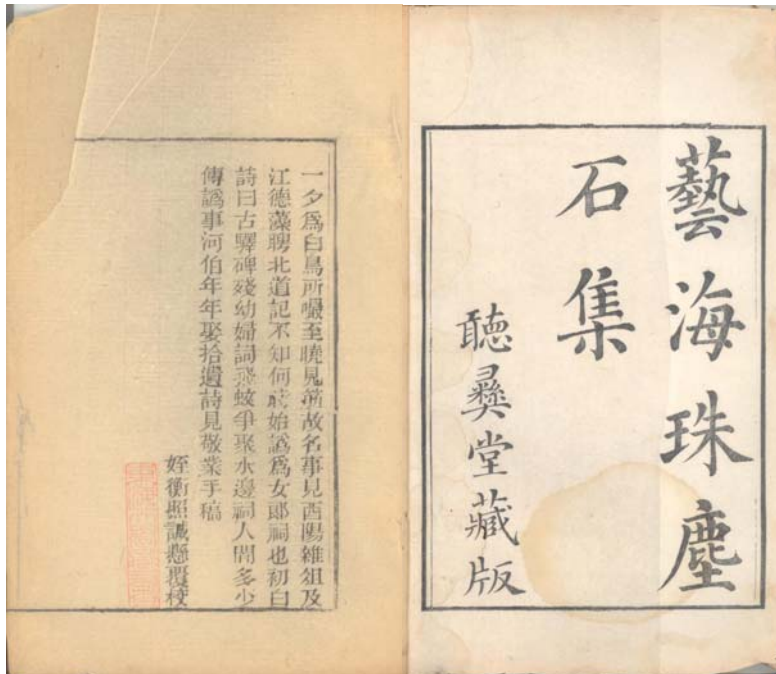 藝海珠塵
石集
聽彝堂藏版
一夕爲白鳥所嘬至曉見筋故名事見酉陽雜俎及
江德藻聘北道記不知何時始譌爲女郎祠也初白
詩曰古驛碑殘幼婦詞飛蚊爭聚水邊祠人間多少
傳譌事河伯年年娶拾遺詩見敬業手稿
姪衡照諴懸覆校